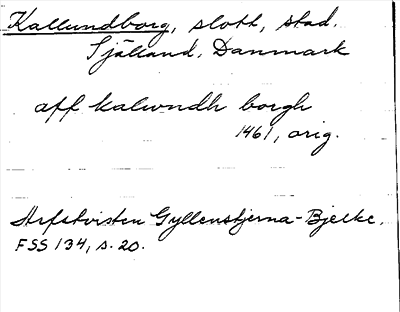 Kallundborg, slott, stad.
Själland, Danmark
aff kalwndh borgh
1461, orig.
Arfstvisten Gyllenstjerna-Bjelke.
FSS 134, s. 20.